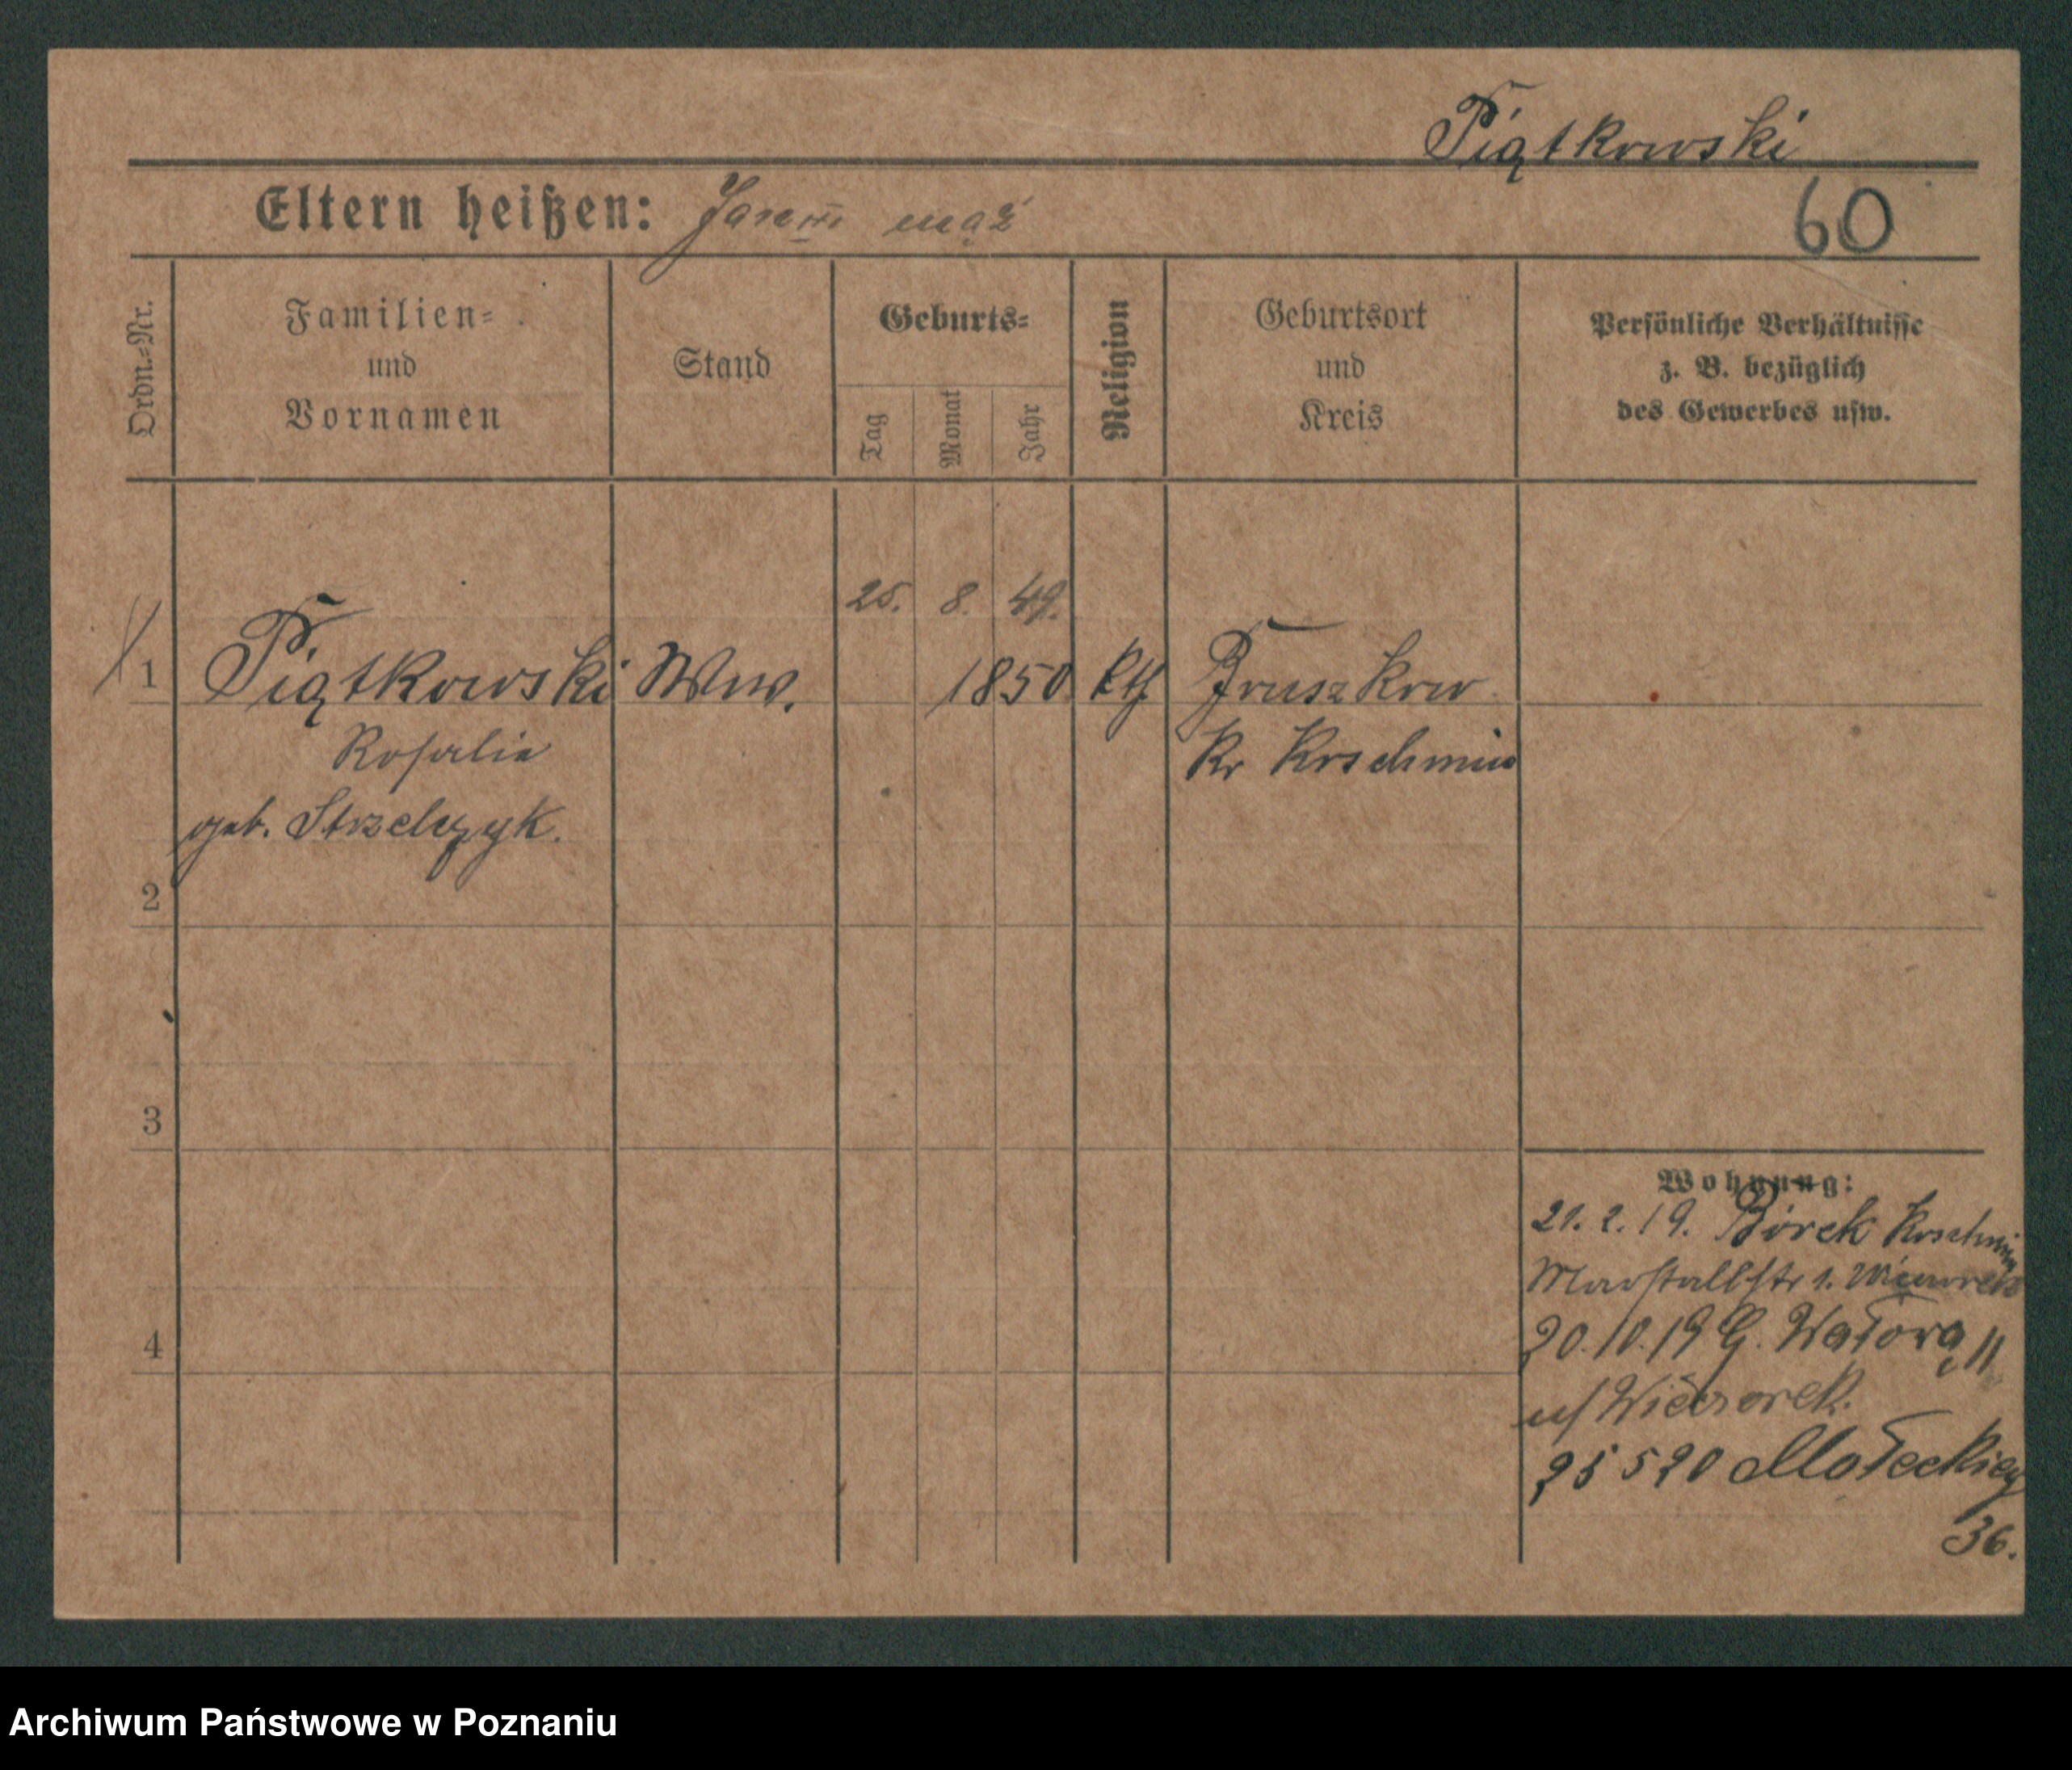 Piątkowski
Eltern heißen: Jan mąż
60
Ordn.-Nr.
Familien- und Vornamen
Stand
Geburts-
Tag
Monat
Jahr
Religion
Geburtsort und Kreis
Persönliche Verhältnisse z. B. bezüglich des Gewerbes usw.
25. 8. 49.
1 Piątkowski Ww. 1850 kth Bruszkow
Rosalie Kr Koschmin
geb. Strzelczyk.
2
3
Wohnung:
21. 2. 19. Borek Koschmin
Marstallstr 1. Wieczorek
4
20.10.19 G. Wałowa 11
u/ Wieczorek.
25 5 20 Małeckiego
36.
Archiwum Państwowe w Poznaniu